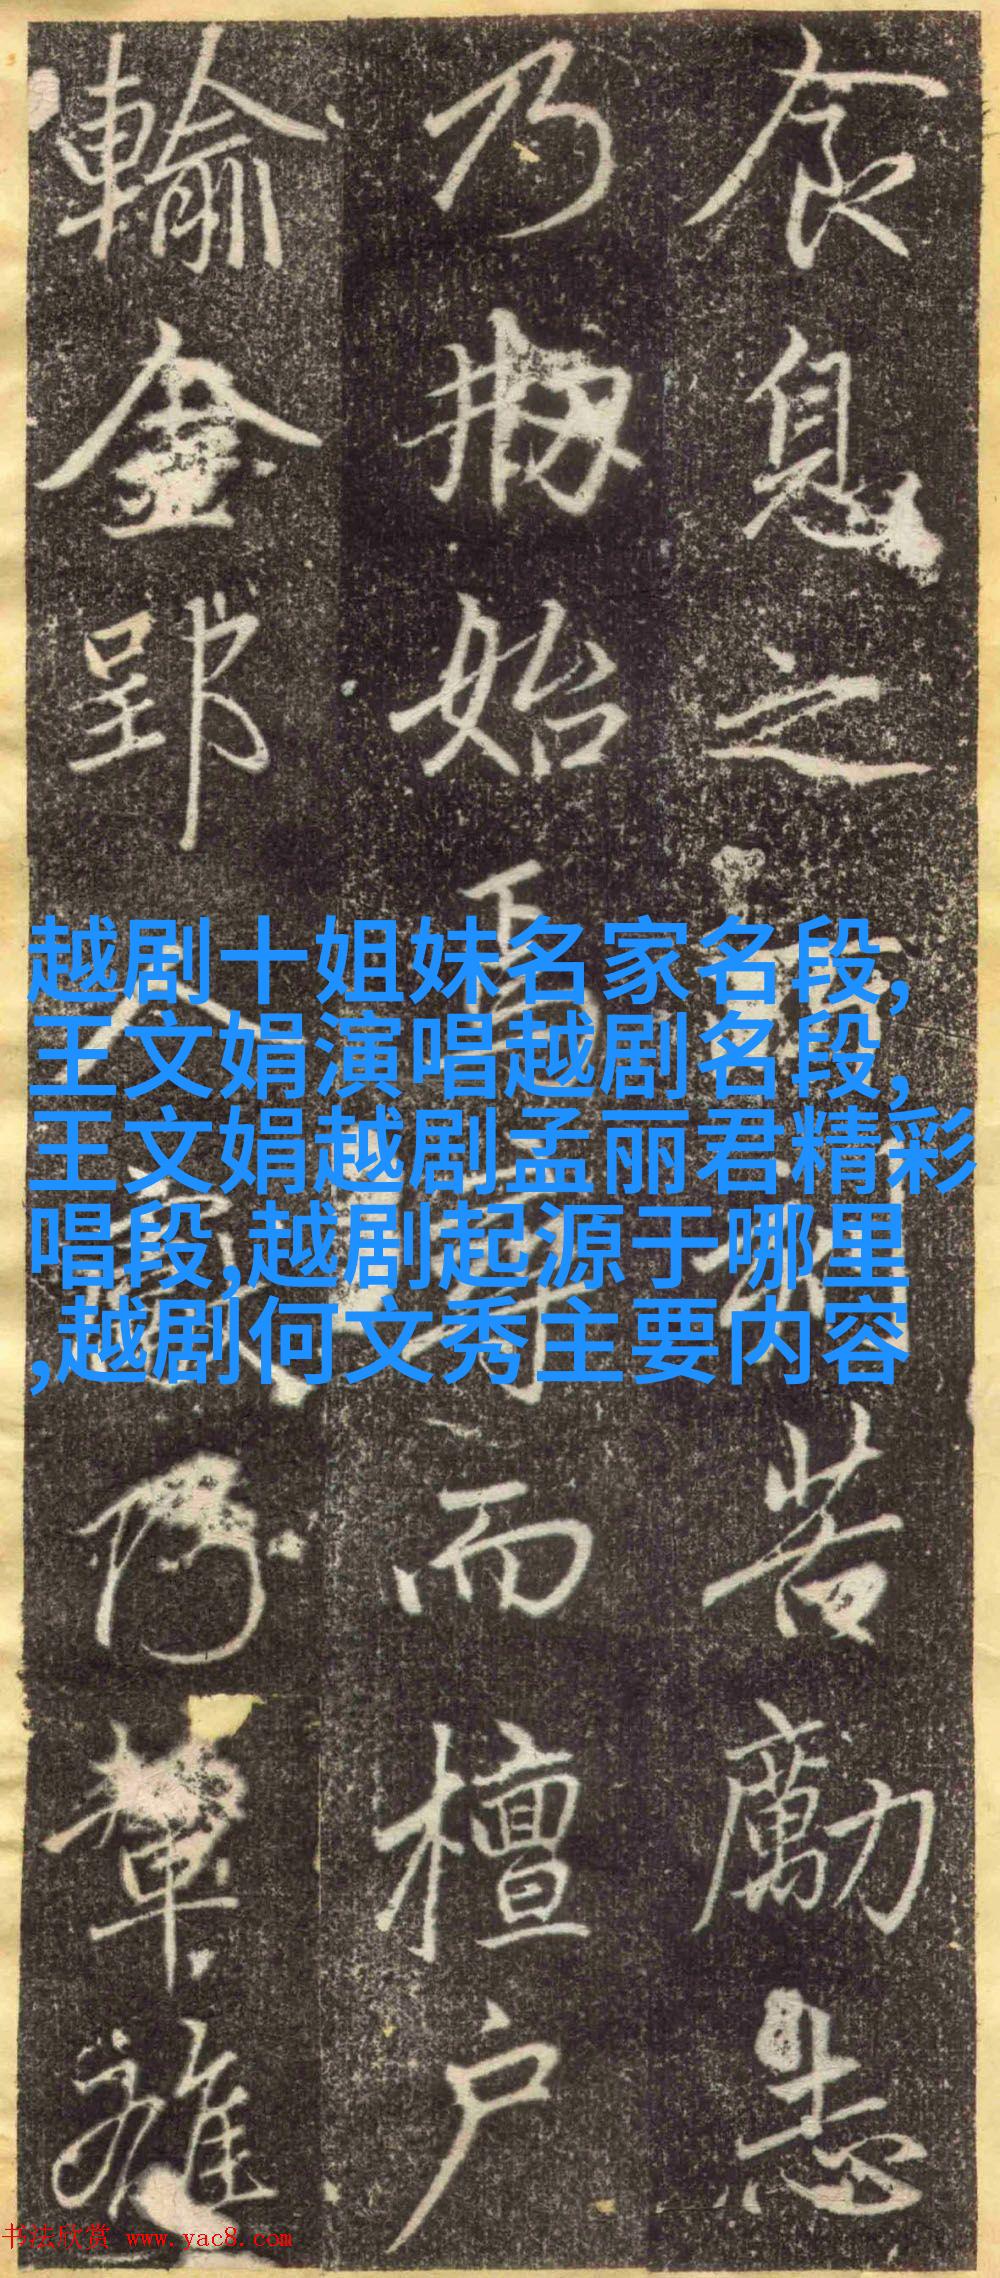 食息之苦勵志
乃始而檀户
輸金郢人
越剧十姐妹名家名段,
王文娟演唱越剧名段,
王文娟越剧孟丽君精彩
唱段,越剧起源于哪里
,越剧何文秀主要内容
书法欣赏 www.yac8.com